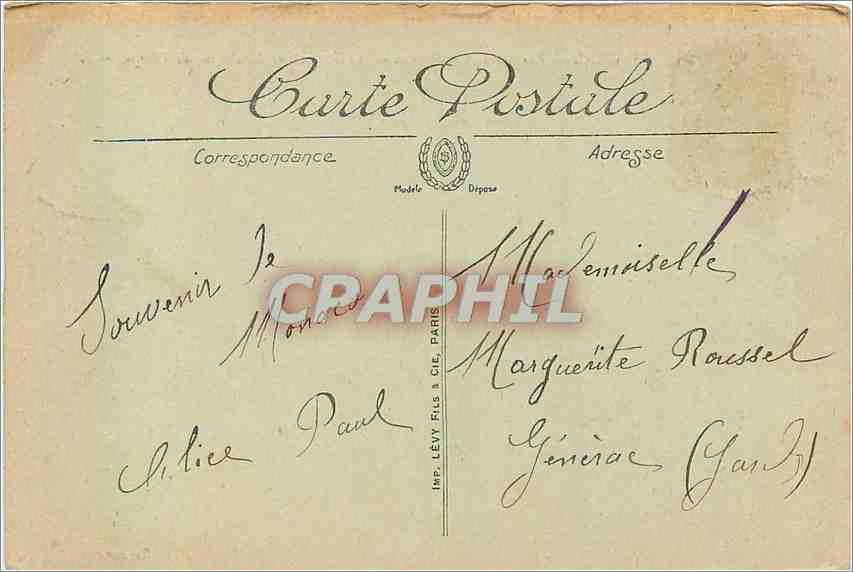 Carte Postale
Correspondance
Adresse
Modèle Déposé
Souvenir de
Monaco
Alice Paul
IMP. LÉVY FILS & CIE, PARIS
Mademoiselle
Marguerite Roussel
Générac (Gard)
CPARPHIL